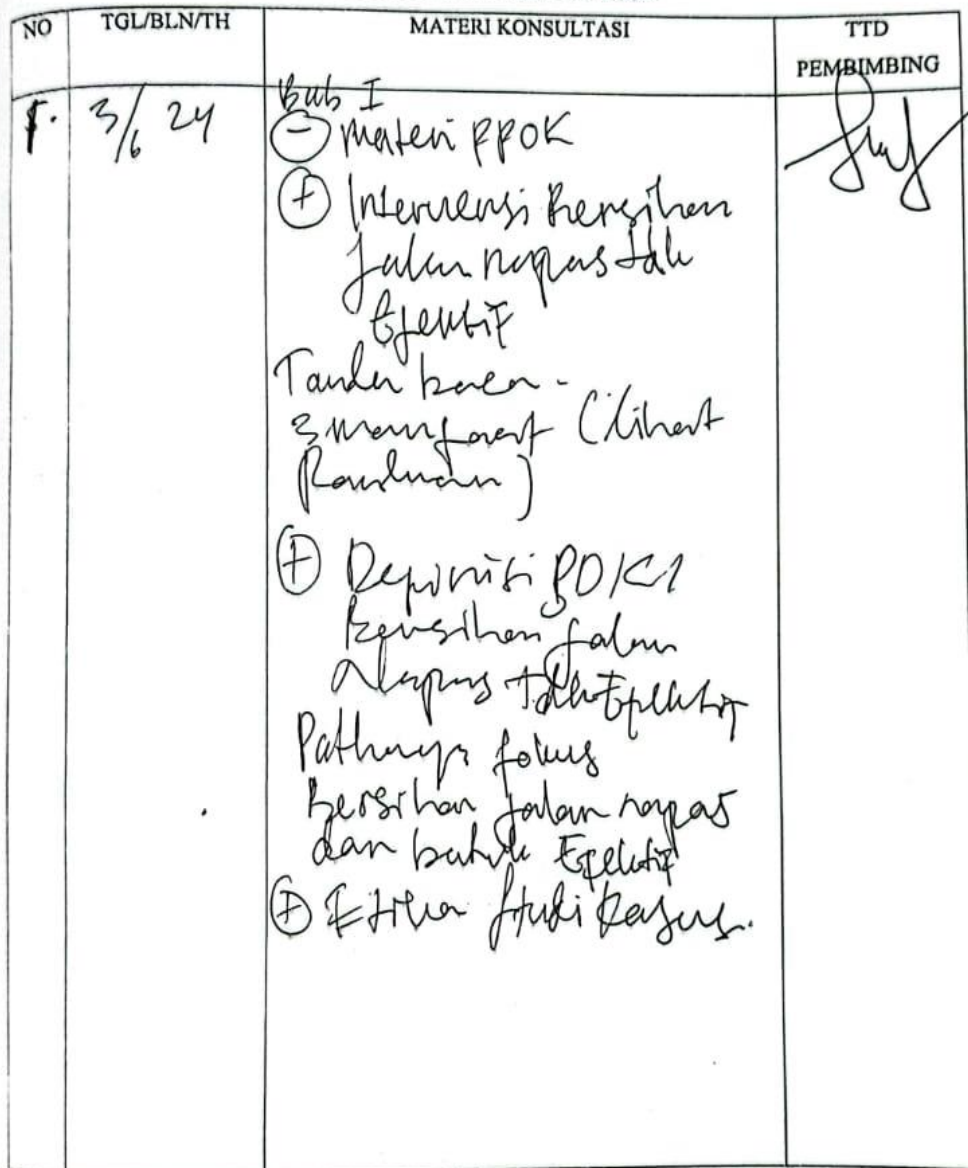 NO TGL/BLN/TH MATERI KONSULTASI TTD
PEMBIMBING
1. 3/6 24 Bab I
- Materi PPOK
+ Intervensi Bersihan
jalan napas tdk
Efektif
Tanda baca -
3 manfaat (lihat
Panduan)
+ Depinisi SDKI
Bersihan jalan
Napas tdk Epektif
Pathway fokus
Bersihan jalan napas
dan batuk Epektif
+ Etika studi kasus.